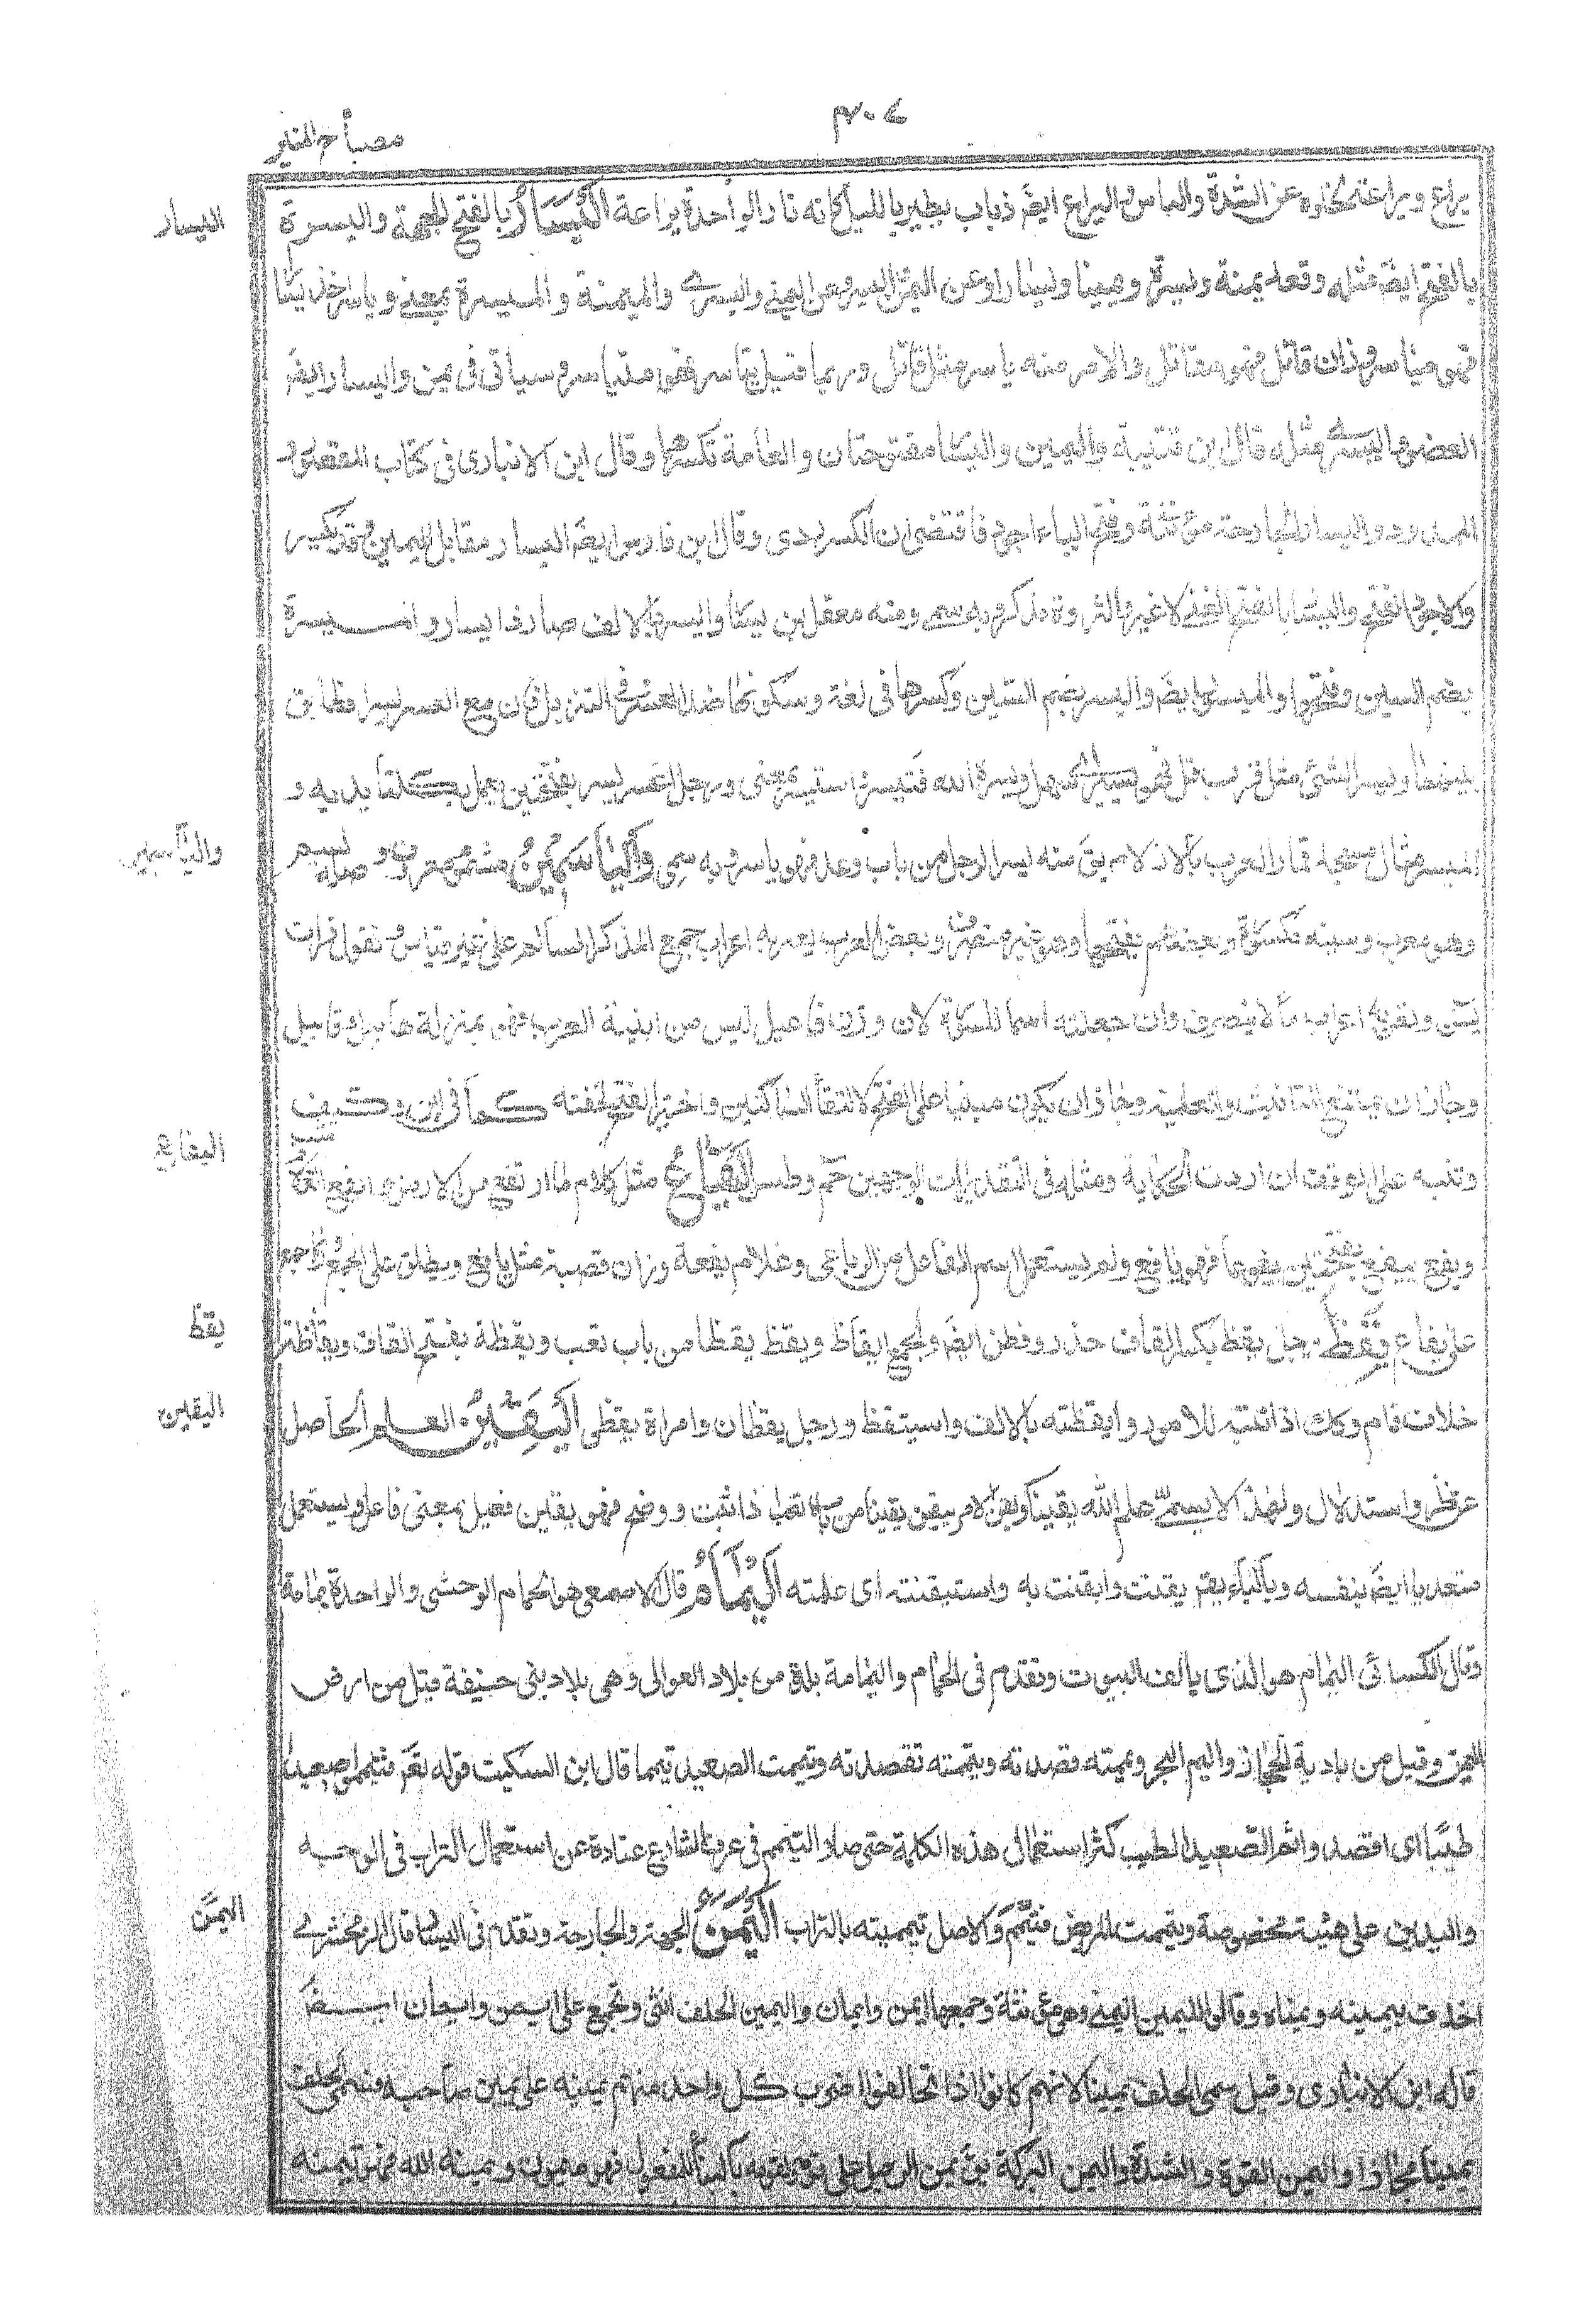 مصباح المنير
يراع ويراعة لخلوه عن الشدة والباس واليراع ايضً ذباب يطير بالليل كانه نار الواحدة يراعة اَلْيَسَارُ بالفتح الجهة واليسرة
اليسار
بالفتح ايضً مثله وقعد يمنة ويسرة ويمينا ويسارا وعن اليمين واليسار وعن اليمنى واليسرى والميمنة والميسرة بمعنى وياسر اخذ يسارا
فهو مياسر وزان قاتل فهو مقاتل والامر منه ياسر مثل قاتل وربما قيل تياسر فهو متياسر وسياتى فى يمن واليسار ايضً
العضو واليسرى مثله قال ابن قتيبة واليمين واليسار مفتوحتان والعامة تكسرهما وقال ابن الانبارى فى كتاب المقصور و
الممدود واليسار الجارحة مؤنثة وفتح الياء اجود فاقتضى ان الكسر ردى وقال ابن فارس ايضً اليسار مقابل اليمين وقد تكسر
والاجود الفتح واليسار بالفتح الغنى لا غير والثروة مذكر وبه سمى ومنه معقل بن يسار وايسر بالالف صار ذا يسار والميسرة
بضم السين وفتحها والميسور ايضً واليسر بضم السين وسكونها ضد العسر وفى التنزيل ان مع العسر يسرا فطابق
بينهما ويسر الشئ مثل قرب قل فهو يسير ويسره الله فتيسر واستيسر بمعنى ورجل اعسر يسر بفتحتين يعمل بكلتا يديه و
الميسر مثال مسجد قمار العرب بالازلام يقً منه يسر الرجل من باب وعد فهو ياسر وبه سمى وَالْيَاسَمِيْنُ مشموم معروف واصله يسم
والياسمين
وهو معرب وسينه مكسورة وبعضهم يفتحها وهو غير منصرف وبعض العرب يعربه اعراب جمع المذكر السالم على غير قياس وتقول قرات
يٰسٓ وتعربه اعراب ما لا ينصرف ان جعلته اسما للسورة لان وزن فاعيل ليس من ابنية العرب فهو بمنزلة هابيل وقابيل
وجاز ان يمتنع للتانيث والعلمية وجاز ان يكون مبنيا على الفتح لالتقاء الساكنين واختير الفتح لخفته كما فى اين وكيف
وتبنيه على الوقف ان اردت الحكاية ومثله فى التقديرات الوجهين حٰمٓ وطٰسٓ اَلْيَفَاعُ مثل كلام ما ارتفع من الارض وايفع الغلام شب
اليفاع
ويفع ييفع بفتحتين يفوعا فهو يافع ولم يستعمل اسم الفاعل من الرباعى وغلام يفعة وزان قصبة مثل يافع ويطلق على الجمع وربما جمع
على يفاع يَقِظٌ رجل يقظ بكسر القاف حذر وفطن ايضً والجمع ايقاظ ويقظ يقظا من باب تعب ويقظة بفتح القاف ويقاظة
يقظ
خلاف نام وكك اذا تنبه للامور وايقظته بالالف واستيقظ ورجل يقظان وامراة يقظى اَلْيَقِيْنُ العلم الحاصل
اليقين
عن نظر واستدلال ولهذا لا يسمى علم الله يقينا ويقن الامر ييقن يقينا من باب تعب اذا ثبت ووضح فهو يقين فعيل بمعنى فاعل ويستعمل
متعديا ايضً بنفسه وبالباء يقً يقنت وايقنت به واستيقنت اى علمته اَلْيَمَامُ قال الاصمعى هو الحمام الوحشى والواحدة يمامة
وقال الكسائى اليمام هو الذى يالف البيوت وتقدم فى الحمام واليمامة بلدة من بلاد العوالى وهى بلاد بنى حنيفة قيل من ارض
اليمن وقيل من بادية الحجاز واليم البحر ويممته قصدته وتيممته تقصدته وتيممت الصعيد تيمما قال ابن السكيت قوله تعً فتيمموا صعيدا
طيبا اى اقصدوا الصعيد الطيب كثر استعمال هذه الكلمة حتى صار التيمم فى عرف الشارع عبارة عن استعمال التراب فى الوجه
واليدين على هيئة مخصوصة ويممت المريض فتيمم والاصل تيممته بالتراب اَلْيَمِيْنُ الجهة والجارحة وتقدم فى اليسار قال الزمخشرى
اليمين
اخذت بيمينه ويمناه وقالوا لليمين اليمنى وهى مؤنثة وجمعها ايمن وايمان واليمين الحلف انثى وتجمع على ايمن وايمان ايضً
قاله ابن الانبارى وقيل سمى الحلف يمينا لانهم كانوا اذا تحالفوا ضرب كل واحد منهم يمينه على يمين صاحبه فسمى الحلف
يمينا مجازا واليمين القوة والشدة واليمن البركة يقً يمن الرجل على قومه ولقومه بالبناء للمفعول فهو ميمون ويمنه الله فهو تيمنه